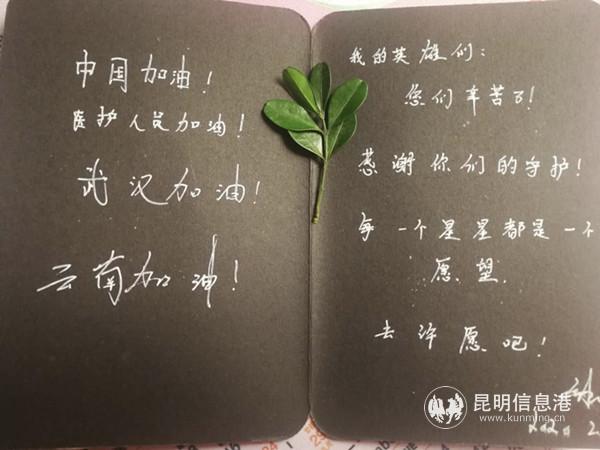 中国加油!
医护人员加油!
武汉加油!
云南加油!
我的英雄们:
您们辛苦了!
感谢你们的守护!
每一个星星都是一个
愿望
去许愿吧!
昆明信息港
www.kunming.cn